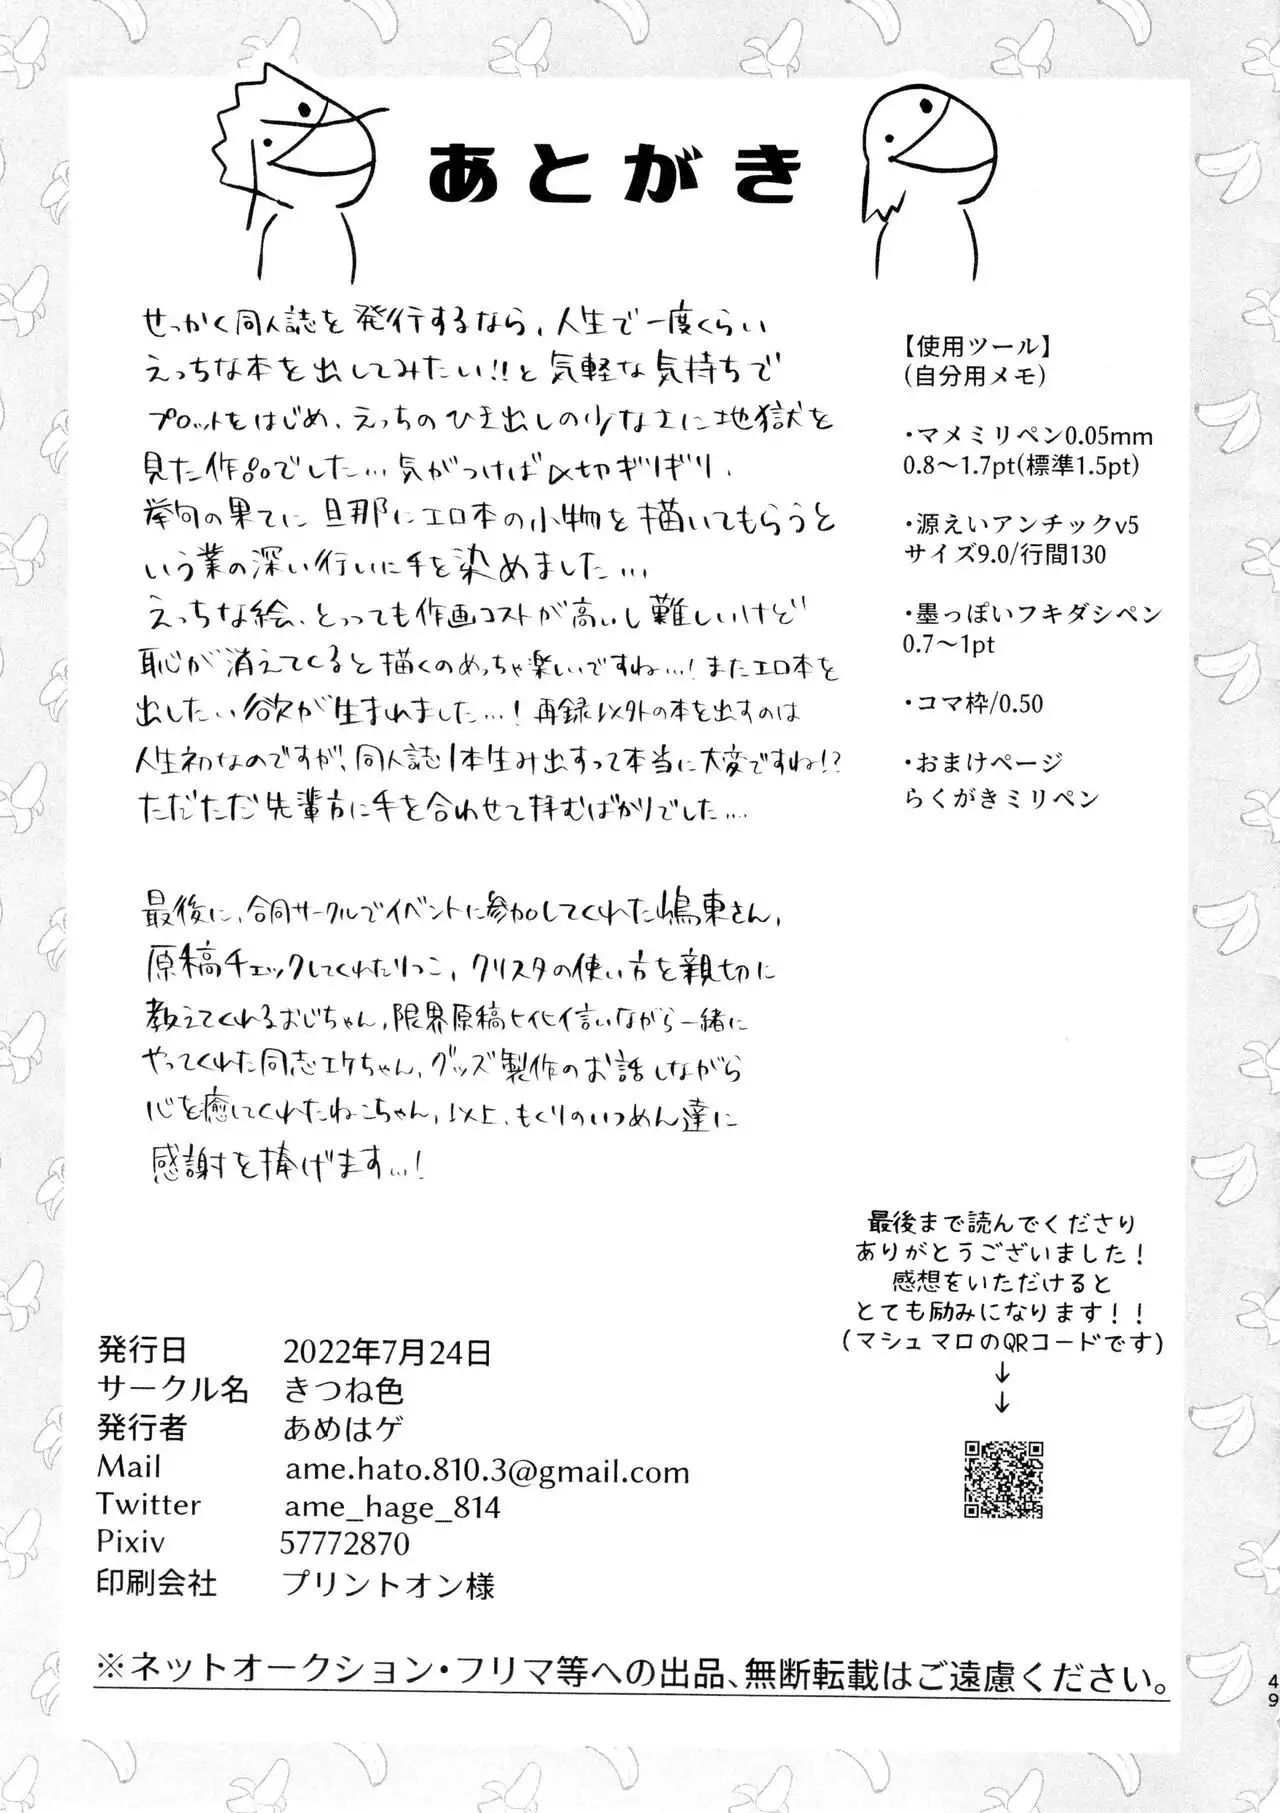 あとがき
せっかく同人誌を発行するなら、人生で一度くらい
えっちな本を出してみたい!!と気軽な気持ちで
プロットをはじめ、えっちのひき出しの少なさに地獄を
見た作品でした…気がつけば〆切ギリギリ、
挙句の果てに旦那にエロ本の小物を描いてもらうと
いう業の深い行いに手を染めました…
えっちな絵、とっても作画コストが高いし難しいけど
恥が消えてくると描くのめっちゃ楽しいですね…!またエロ本を
出したい欲が生まれました…!再録以外の本を出すのは
人生初なのですが、同人誌1本生み出すって本当に大変ですね!?
ただただ先輩方に手を合わせて拝むばかりでした…
最後に、合同サークルでイベントに参加してくれた嶋東さん、
原稿チェックしてくれたりつこ、クリスタの使い方を親切に
教えてくれるおじちゃん、限界原稿ヒイヒイ言いながら一緒に
やってくれた同志エケちゃん、グッズ製作のお話しながら
心を癒してくれたねこちゃん、以上、もくりのいつめん達に
感謝を捧げます…!
【使用ツール】
(自分用メモ)
・マメミリペン0.05mm
0.8〜1.7pt(標準1.5pt)
・源えいアンチックv5
サイズ9.0/行間130
・墨っぽいフキダシペン
0.7〜1pt
・コマ枠/0.50
・おまけページ
らくがきミリペン
最後まで読んでくださり
ありがとうございました!
感想をいただけると
とても励みになります!!
(マシュマロのQRコードです)
↓
↓
発行日 2022年7月24日
サークル名 きつね色
発行者 あめはゲ
Mail ame.hato.810.3@gmail.com
Twitter ame_hage_814
Pixiv 57772870
印刷会社 プリントオン様
※ネットオークション・フリマ等への出品、無断転載はご遠慮ください。
49